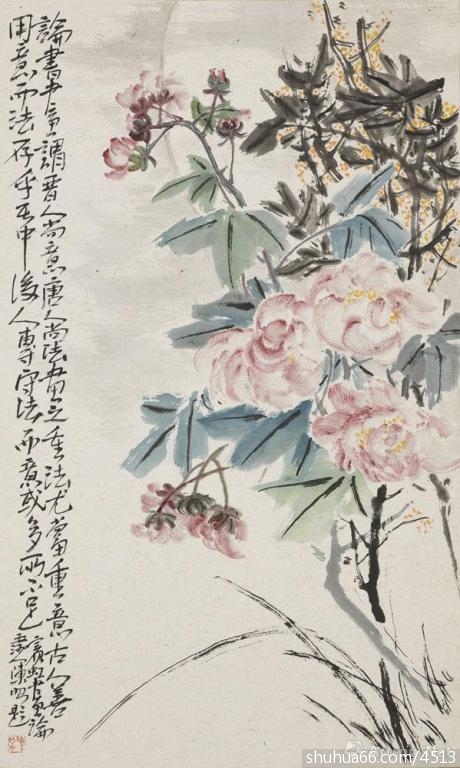 論書者謂晉人尚意唐人尚法畫之重法尤當重意古人善
用意而法存乎其中後人專守法而意或多所不足
賓虹畫論
題
shuhua66.com/4513